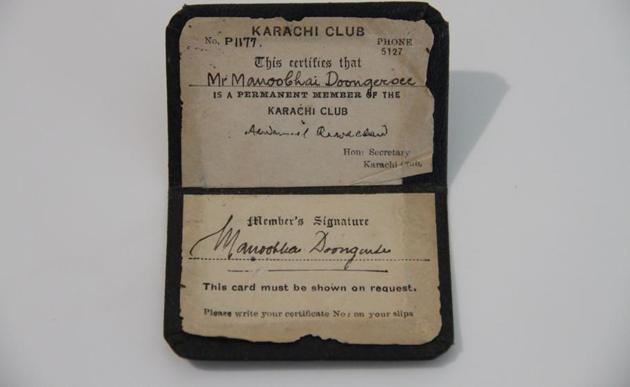 KARACHI CLUB
No. P1177. PHONE
5127
This certifies that
Mr Manoobhai Doongersee
IS A PERMANENT MEMBER OF THE
KARACHI CLUB
Hon: Secretary
Karachi Club.
Member's Signature
Manoobhai Doongersee
This card must be shown on request.
Please write your certificate No: on your slips